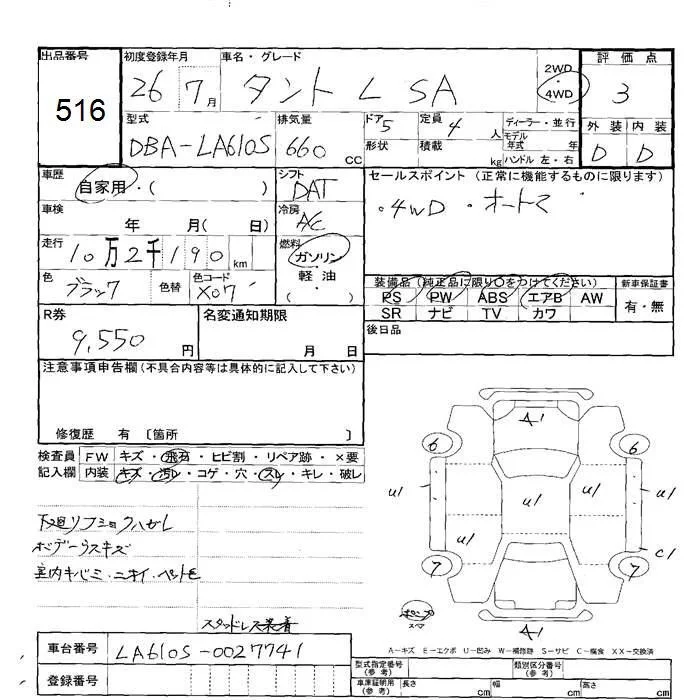 出品番号
516
初度登録年月
26 7月
車名・グレード
タント L SA
2WD
4WD
評価点
3
外装 内装
D D
型式
DBA-LA610S
排気量
660 cc
ドア 5
形状
定員 4 人
積載 kg
ディーラー・並行
モデル年式 年
ハンドル 左・右
車歴
自家用・( )
シフト
DAT
セールスポイント (正常に機能するものに限ります)
・4WD ・オートマ
車検
年 月( 日)
冷房
A/C
走行
10万2千190 km
燃料
ガソリン・
軽油・
( )
色
ブラック
色替
色コード
X07
装備品(純正品に限り○をつけてください)
PS PW ABS エアB AW
SR ナビ TV カワ
新車保証書
有・無
R券
9,550 円
名変通知期限
月 日
後日品
注意事項申告欄(不具合内容等は具体的に記入して下さい)
修復歴 有 〔箇所 〕
検査員
記入欄
FW キズ・飛石・ヒビ割・リペア跡・×要
内装 キズ・汚れ・コゲ・穴・スレ・キレ・破レ
ボデーウスキズ
室内キバミ・ニオイ・ペット毛
スタッドレス装着
A1
6 6
U1 U1 U1 U1
U1 C1
7 7
A1
A-キズ E-エクボ U-凹み W-補修跡 S-サビ C-腐食 XX-交換済
車台番号
LA610S-0027741
登録番号
型式指定番号
(参考)
類別区分番号
(参考)
車庫証明用
(参考)
長さ cm 幅 cm 高さ cm